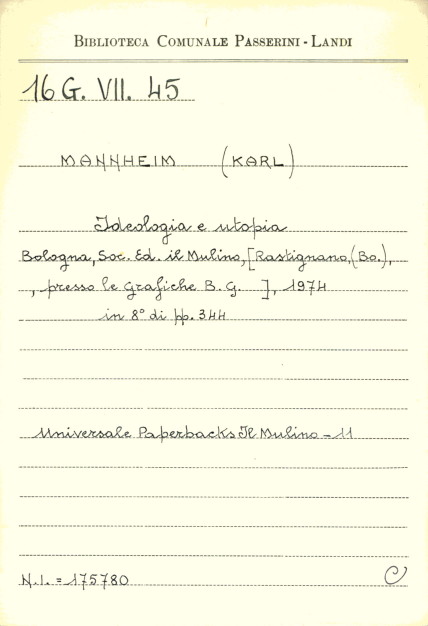 BIBLIOTECA COMUNALE PASSERINI - LANDI
16 G. VII. 45
MANNHEIM (KARL)
Ideologia e utopia
Bologna, Soc. Ed. il Mulino, [Rastignano, (Bo.),
, presso le Grafiche B. G. ], 1974
in 8° di pp. 344
Universale Paperbacks Il Mulino - 11
N.I. = 175780
C